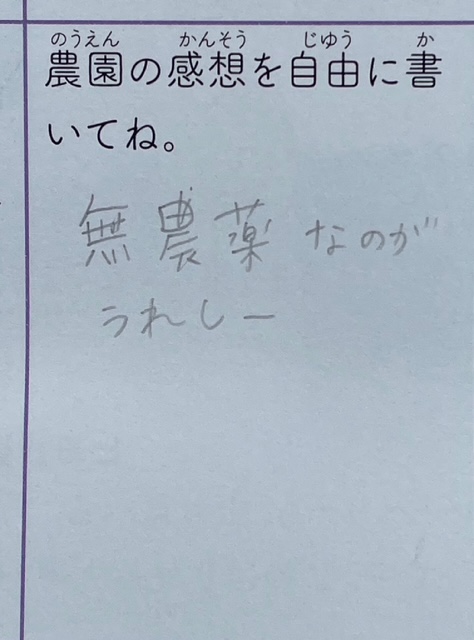 のうえん かんそう じゆう か
農園の感想を自由に書
いてね。
無農薬なのが
うれしー